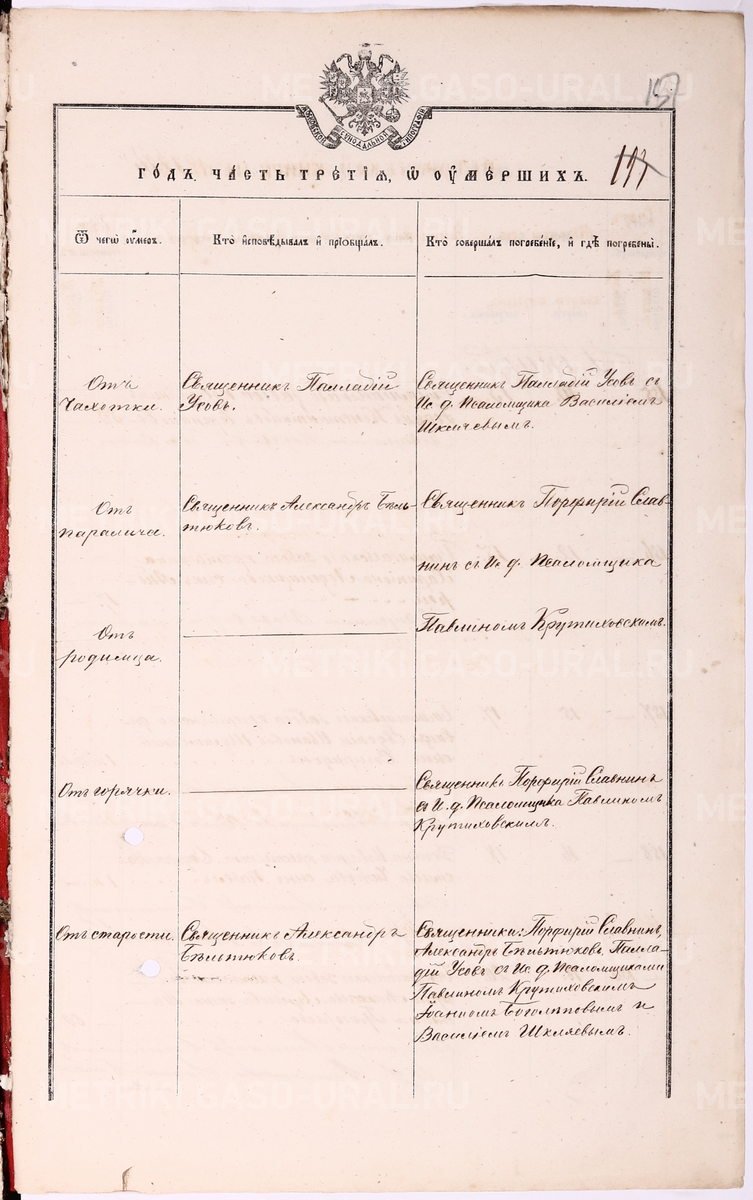 157
МОСКОВСКОЙ СИНОДАЛЬНОЙ ТИПОГРАФІИ
го́дъ, ча́сть тре́тїѧ, ѡ᾽ ᲂу҆ме́ршихъ.
Ѿ чегѡ̀ ᲂу҆́меръ.
Кто̀ и҆сповѣ́дывалъ и҆ прїѡбща́лъ.
Кто̀ соверша́лъ погребе́нїе, и҆ гдѣ̀ погребены̀.
Отъ
Чахотки.
Священникъ Палладій
Усовъ.
Священникъ Палладій Усовъ съ
Ис. д. Псаломщика Василіемъ
Шкляевымъ.
Отъ
паралича.
Священникъ Александръ Бѣль-
тюковъ.
Священникъ Порфирій Слав-
нинъ съ И. д. Псаломщика
Павлиномъ Крутиховскимъ.
Отъ
родимца.
Отъ горячки.
Священникъ Порфирій Славнинъ
съ И. д. Псаломщика Павлиномъ
Крутиховскимъ.
Отъ старости.
Священникъ Александръ
Бѣльтюковъ.
Священника: Порфирій Славнинъ,
Александръ Бѣльтюковъ, Палла-
дій Усовъ съ Ис. д. Псаломщиками
Павлиномъ Крутиховскимъ
Іоанномъ Боголѣповымъ и
Василіемъ Шкляевымъ.
METRIKI.GASO-URAL.RU